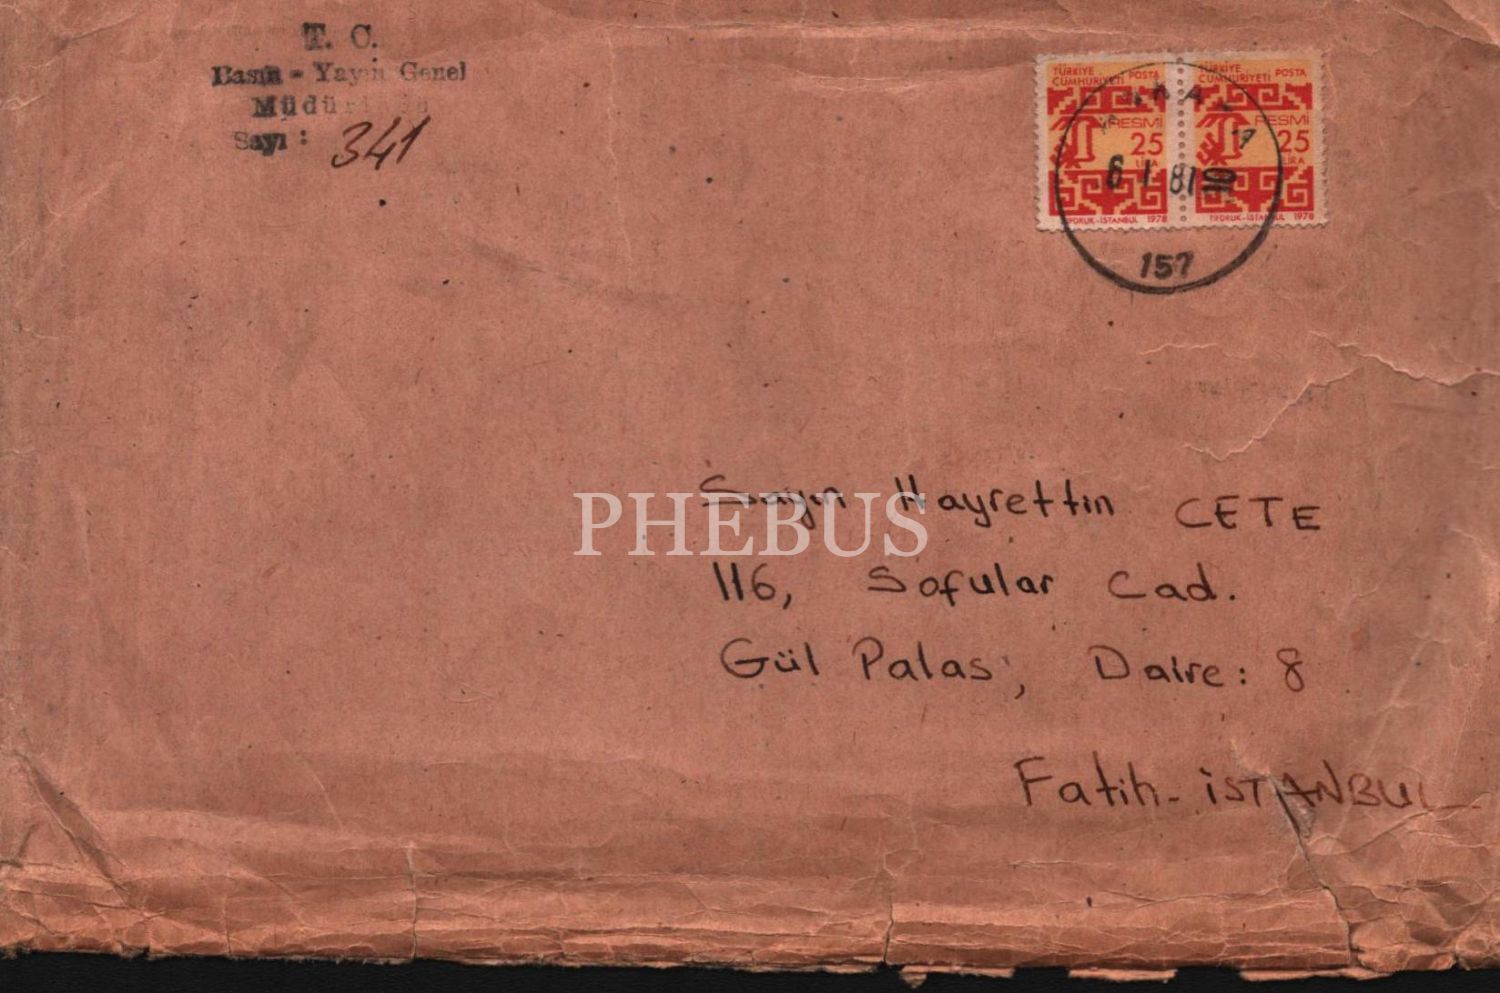 T. C.
Basın - Yayın Genel
Müdürlüğü
Sayı : 341
TÜRKİYE CUMHURİYETİ POSTA
RESMİ
25
LİRA
TİFDRUK-İSTANBUL 1978
TÜRKİYE CUMHURİYETİ POSTA
RESMİ
25
LİRA
TİFDRUK-İSTANBUL 1978
6 1 81
157
PHEBUS
Sayın Hayrettin CETE
116, Sofular Cad.
Gül Palas, Daire: 8
Fatih - İSTANBUL